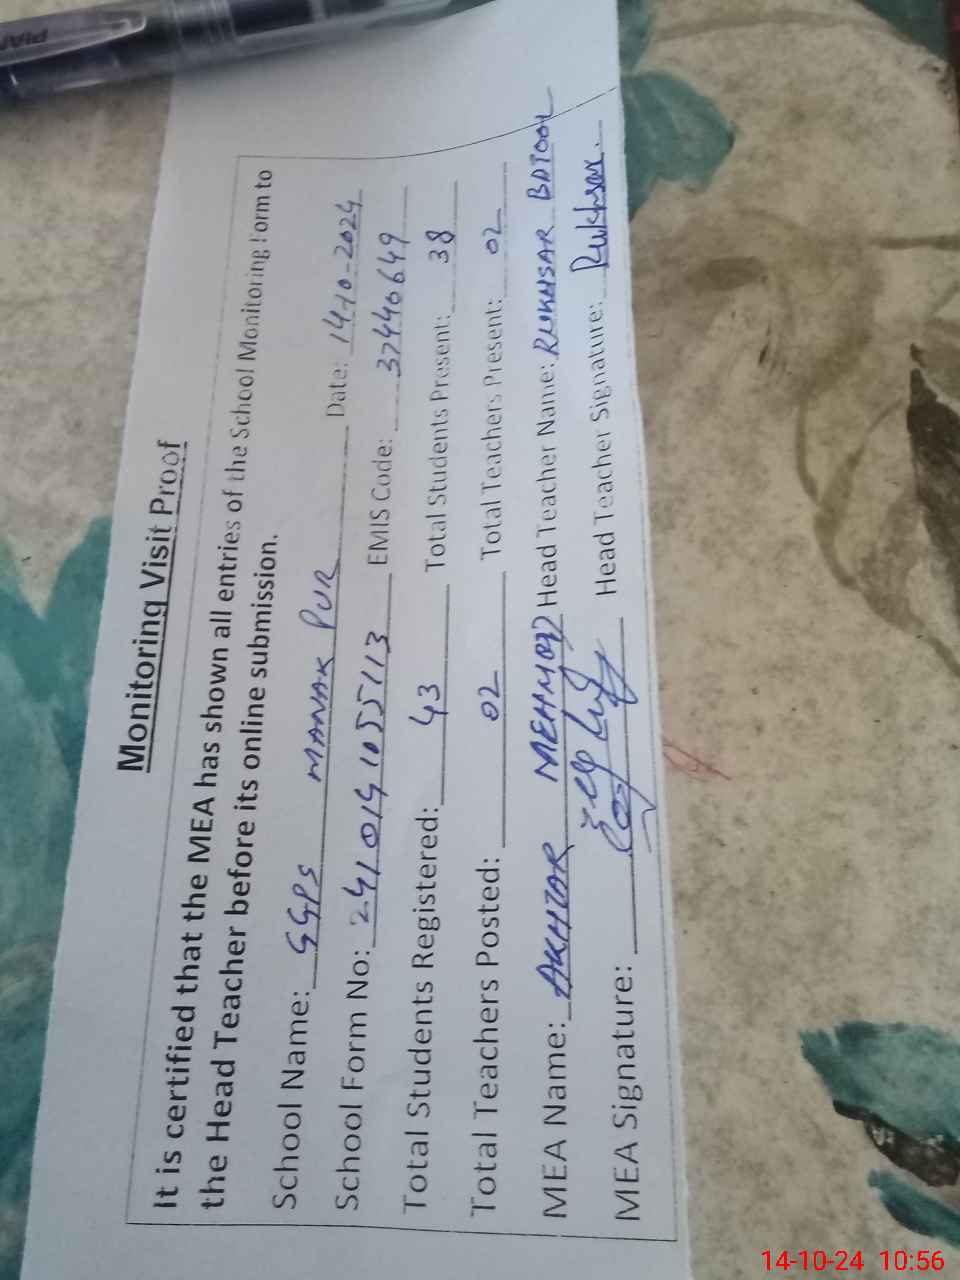 Monitoring Visit Proof
It is certified that the MEA has shown all entries of the School Monitoring Form to
the Head Teacher before its online submission.
School Name: GGPS MANAK PUR Date: 14-10-2024
School Form No: 2410141055113 EMIS Code: 37440649
Total Students Registered: 43 Total Students Present: 38
Total Teachers Posted: 02 Total Teachers Present: 02
MEA Name: AKHTAR MEHMOOD Head Teacher Name: RUKHSAR BATOOL
MEA Signature: Head Teacher Signature: Rukhsar.
14-10-24 10:56